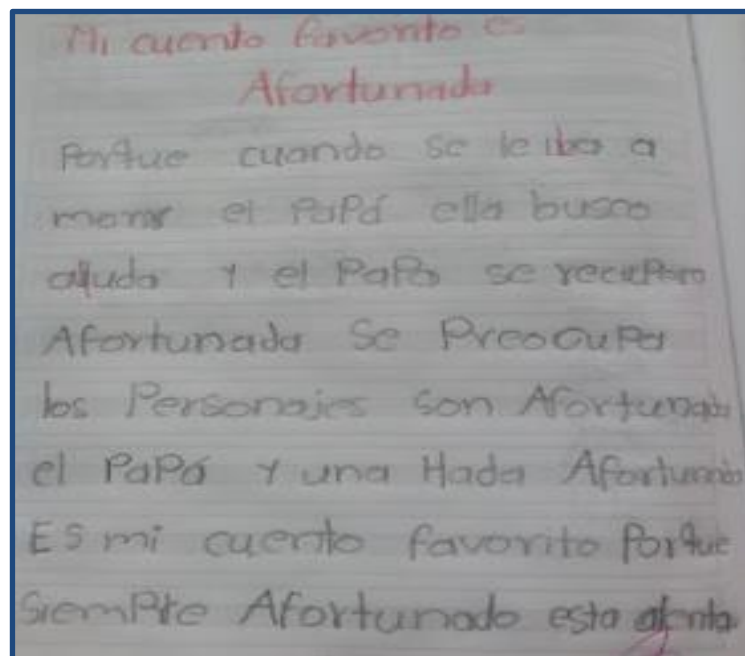 Mi cuento favorito es
Afortunada
Porque cuando se le iba a
morir el PaPá ella busco
alluda y el PaPá se recuPero
Afortunada Se PreocuPa
los Personajes son Afortunada
el PaPá y una Hada Afortunada
ES mi cuento favorito Porque
SiemPre Afortunado esta atenta